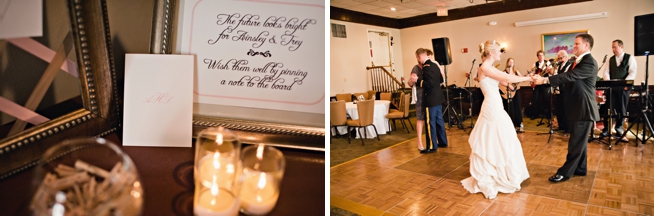 The future looks bright
for Ainsley & Trey
Wish them well by pinning
a note to the board